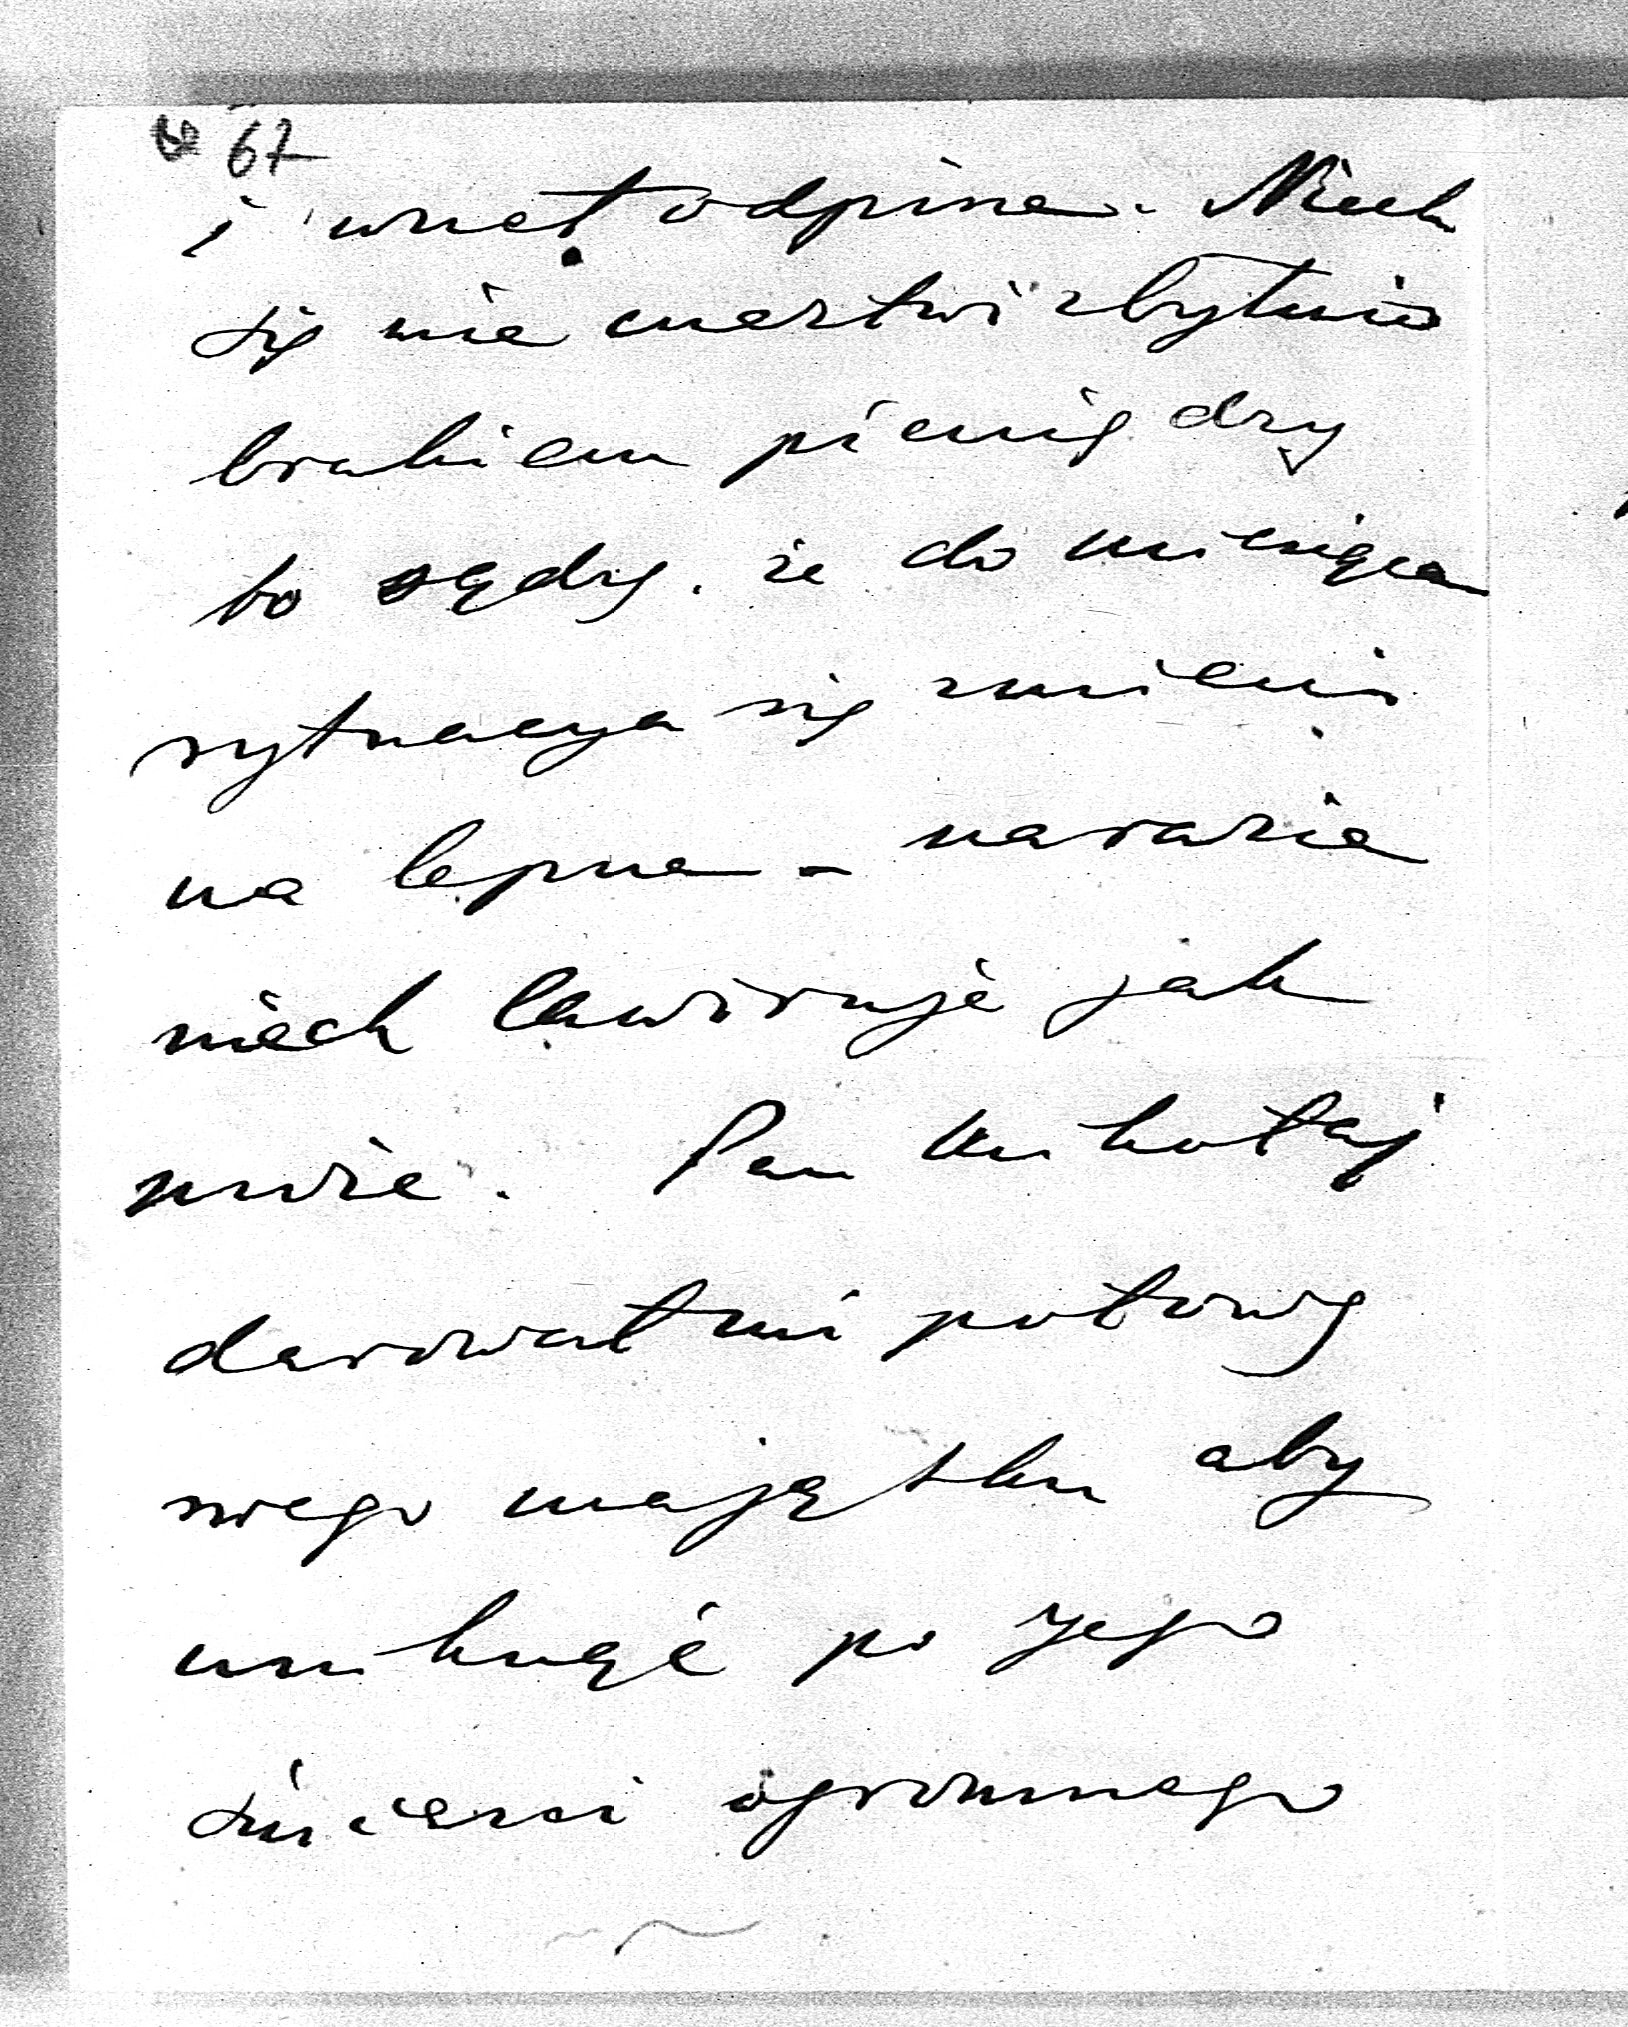 67
i wnet odpisze. Niech
się nie martwi zbytnio
brakiem pieniędzy
bo sądzę, że do miesiąca
sytuacya się zmieni
na lepsze – narazie
niech lawiruje jak
może. Pan Mikołaj
darował mi połowę
swego majątku aby
uniknąć po Jego
śmierci ogromnego